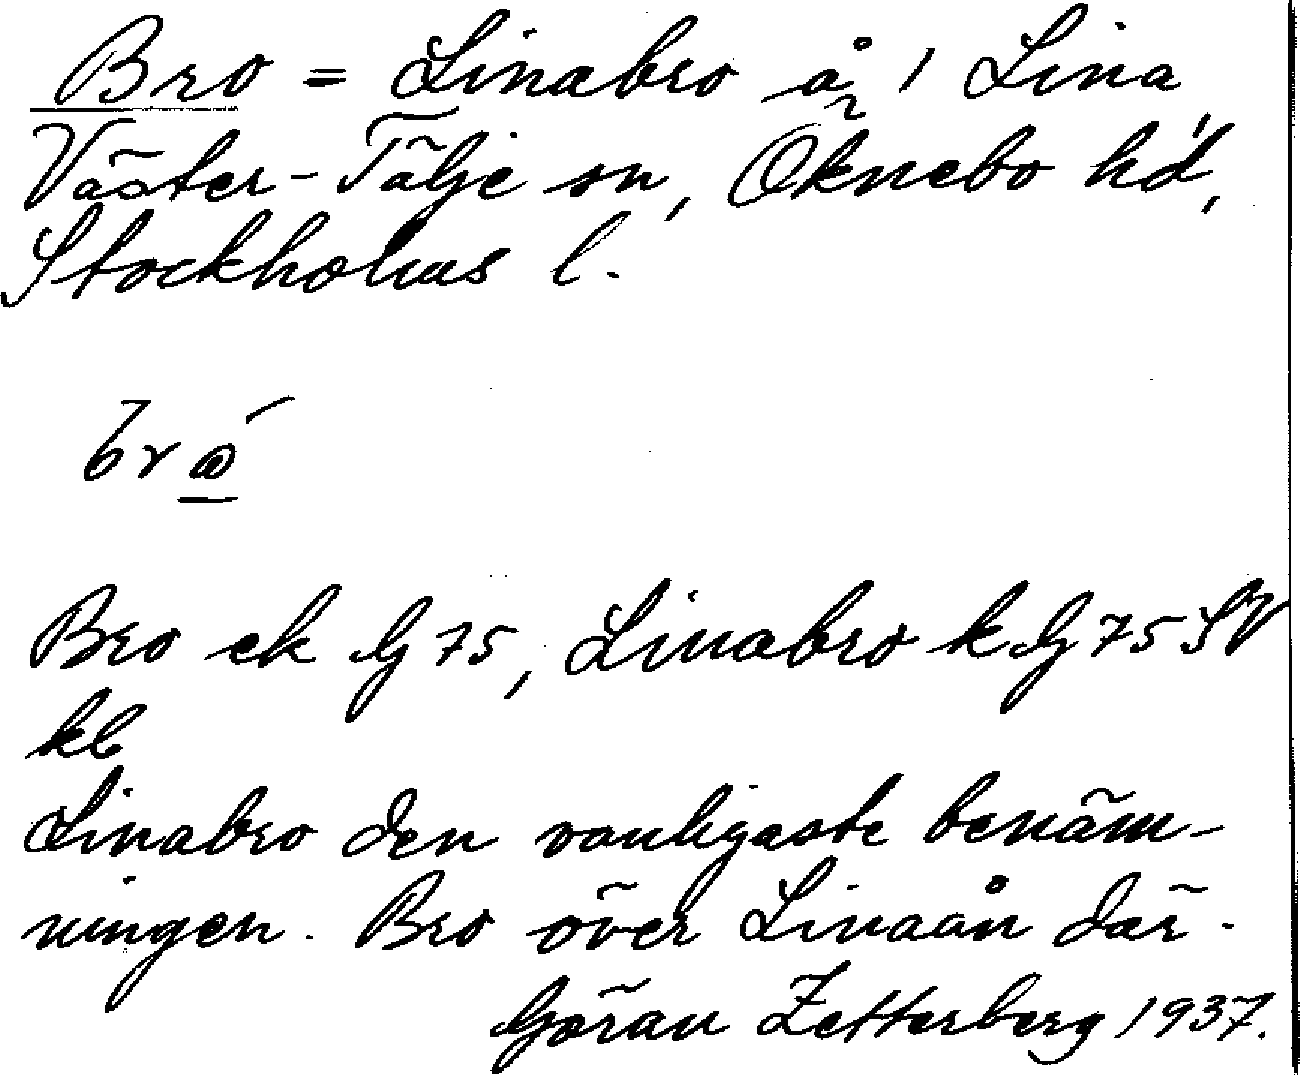 Bro = Linabro å 1 Lina
Väster-Tälje sn, Öknebo hd,
Stockholms l.
brǫ́
Bro ek G 75, Linabro k G 75 SV
kb
Linabro den vanligaste benäm-
ningen. Bro över Linaån där.
Göran Zetterberg 1937.